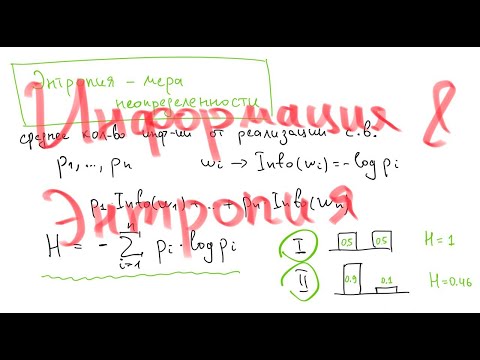 Энтропия – мера
неопределенности
Информация &
среднее кол-во инф-ии от реализации с.в.
p₁, ..., pₙ   wᵢ → Info(wᵢ) = -log pᵢ
p₁ Info(w₁) + ... + pₙ Info(wₙ)
Энтропия
H = - ∑ᵢ₌₁ⁿ pᵢ · log pᵢ
I 0.5 0.5 H = 1
II 0.9 0.1 H = 0.46